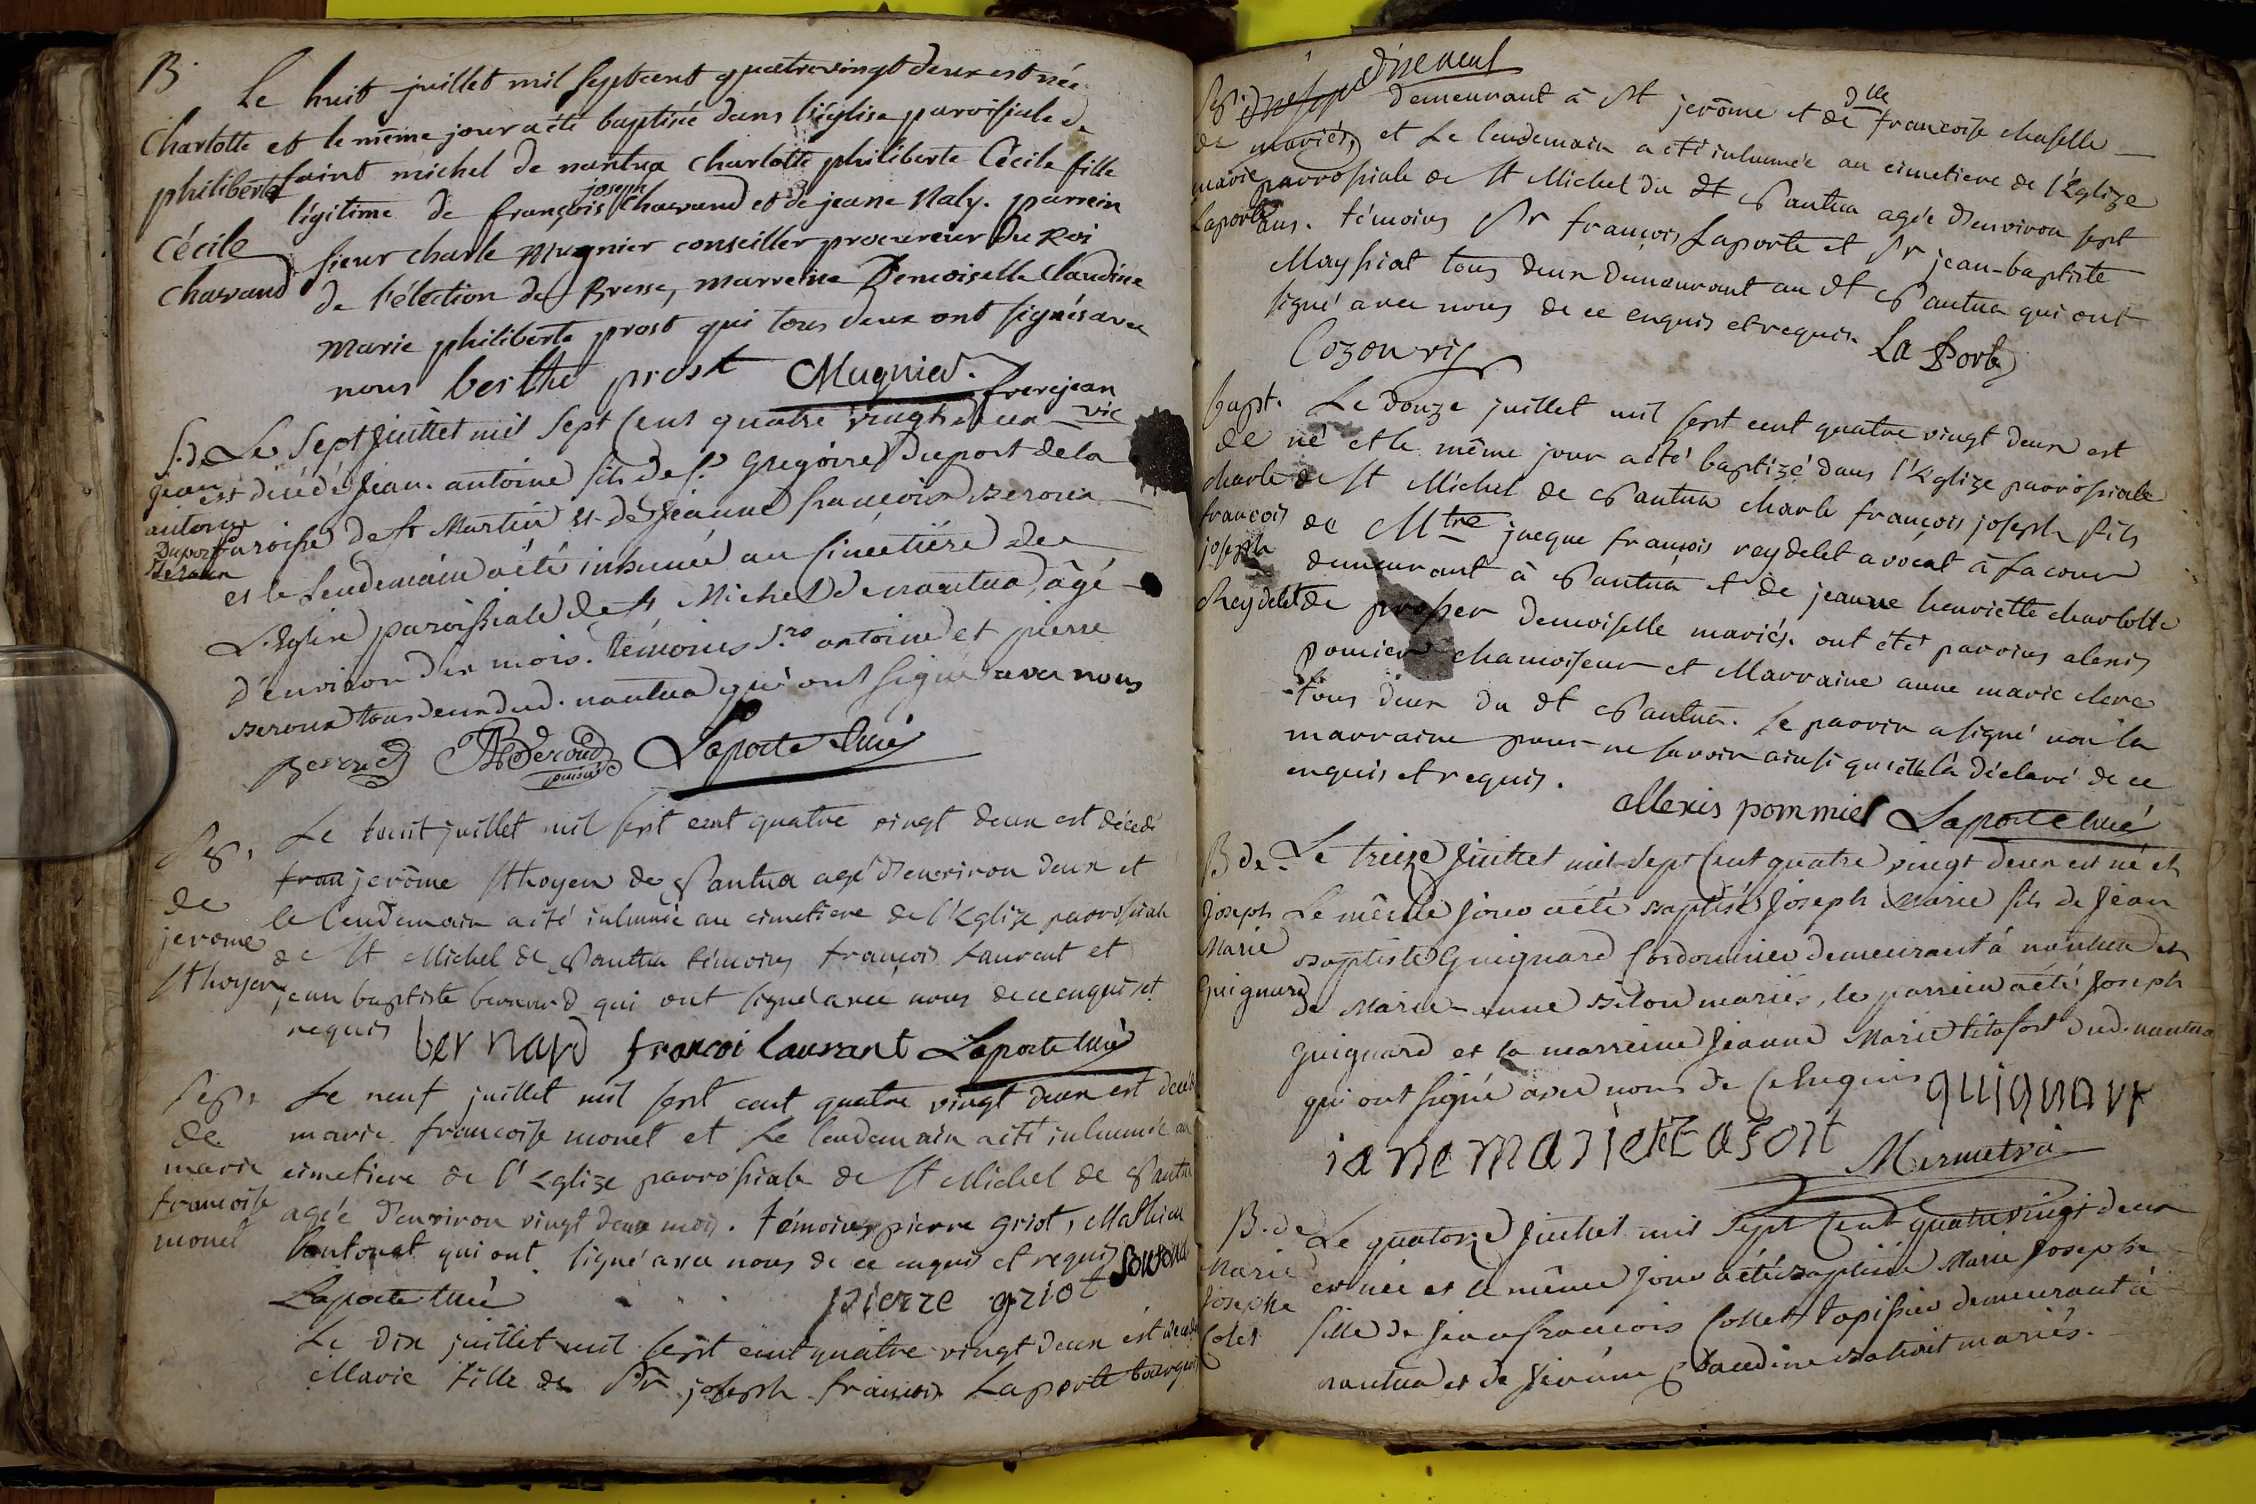 B.
Charlotte
philiberte
Cécile
chavand
Le huit juillet mil septcent quatrevingt deux est née
et le même jour a été baptisée dans l'église paroissiale de
saint michel de nantua charlotte philiberte Cécile fille
joseph
légitime de françois chavand et de jeane Naly. parrein
sieur charle Mugnier conseiller procureur Du Roi
de l'élection de Bresse, marreine Demoiselle Claudine
Marie philiberte prost qui tous deux ont signés avec
nous berthe prost Mugnier. frerejean
vic
S. de
jean
antoine
Duport
Le Sept Juillet mil Sept Cent quatre vingt deux
est décédé Jean antoine fils de Sr Gregoire Duport de la
Paroisse de St Martin et de Jeanne françoise Beroux
et le Lendemain a été inhumé au Cimetière de
L'Eglise paroissiale de St Michel de nantua, âgé
d'environ dix mois. témoins Srs antoine et pierre
Beroux tous deux dud. nantua qui ont signé avec nous
Laporte curé
Sep.
de
jerome
Sthoyen
Le huit juillet mil sept cent quatre vingt deux est décedé
fran jerôme Sthoyen de Nantua agé d'environ deux et
le lendemain a été inhumé au cimetiere de l'Eglize parrossiale
de St Michel de Nantua témoins françois Laurent et
jean baptiste bernard qui ont signé avec nous de ce enquis et
requis bernard francoi laurant Laporte curé
Sep.
de
marie
francoise
monet
Le neuf juillet mil sept cent quatre vingt deux est décédé
marie francoise monet et Le lendemain a été inhumée au
cimetiere de l'Eglize parrossiale de St Michel de Nantua
agée d'environ vingt deux mois. témoins pierre griot, Mathieu
qui ont signé avec nous de ce enquis et requis
Laporte curé pierre griot
Le dix juillet mil sept cent quatre vingt deux est décedé
Marie fille de Sr joseph françois Laporte bourgeois
Sep.
de
marie
Laporte
demeurant à St jerôme et de dlle francoise chaselle
mariés, et Le lendemain a été inhumée au cimetiere de l'Eglize
parrossiale de St Michel du dt Nantua agée d'environ sept
ans. témoins Sr françois Laporte et Sr jean-baptiste
Mayssiat tous deux demeurant au dt Nantua qui ont
signé avec nous de ce enquis et requis. La Porte
bapt.
de
charle
francois
joseph
Reydelet
Le douze juillet mil sept cent quatre vingt deux est
né et le même jour a été baptizé dans l'Eglize parrossiale
de St Michel de Nantua charle françois joseph fils
de Mtre jacque françois reydelet avocat à Lacour
demeurant à Nantua et de jeanne henriette charlotte
de prosper demoiselle mariés. ont été parrins alexis
pomier chamoiseur et Marraine anne marie clere
tous deux du dt Nantua. Le parrin a signé non la
marraine pour ne savoir ainsi qu'elle l'a déclaré de ce
enquis et requis.
allexis pommier Laporte curé
B de
Joseph
Marie
Guignard
Le treize Juillet mil Sept Cent quatre vingt deux est né et
Le même jour a été Baptisé Joseph Marie fils de Jean
Baptiste Guignard Cordonnier demeurant à nantua et
de Marie-anne mariés, le parrein a été Joseph
Guignard et la marreine Jeanne Marie titafort dud. nantua
qui ont signé avec nous de Ce Enquis guignard
iane marie titafort Mermetvi
B. de
Marie
Josephe
Colet
Le quatorze Juillet mil Sept Cent quatrevingt deux
est née et le même jour a été Baptisée Marie Josephe
fille de jean francois Collet tapissier demeurant à
nantua et de Claudine mariés.